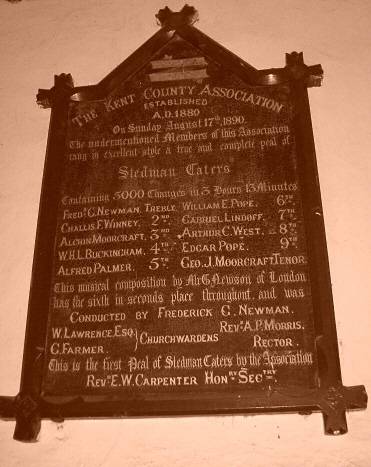 THE KENT COUNTY ASSOCIATION
ESTABLISHED
A.D. 1880
On Sunday August 17th, 1890.
The undermentioned Members of this Association
rang in excellent style a true and complete peal of
Stedman Caters
Containing 5000 Changes in 3 Hours 13 Minutes
FREDK G. NEWMAN. TREBLE. WILLIAM E. POPE. 6TH
CHALLIS F. WINNEY. 2ND GABRIEL LINDOFF. 7TH
MOORCRAFT. 3RD ARTHUR C. WEST. 8TH
W.H.L. BUCKINGHAM. 4TH EDGAR POPE. 9TH
ALFRED PALMER. 5TH GEO. J. MOORCRAFT. TENOR
This musical composition by Mr G. Newson of London
has the sixth in seconds place throughout, and was
CONDUCTED BY FREDERICK G. NEWMAN.
W. LAWRENCE. ESQ. } CHURCHWARDENS REVD A.P. MORRIS.
G. FARMER. RECTOR.
This is the first Peal of Stedman Caters by the Association
REVD E.W. CARPENTER HONRY SECTRY